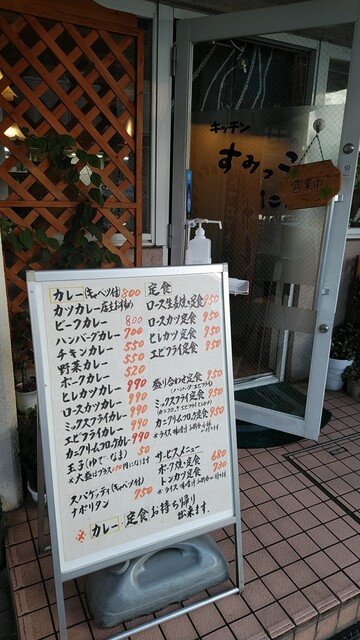 キッチン
すみっこ
営業中
カレー(キャベツ付)
カツカレー(店主おすすめ) 800
ビーフカレー 800
ハンバーグカレー 700
チキンカレー 550
野菜カレー 550
ポークカレー 520
ヒレカツカレー 990
ロースカツカレー 990
ミックスフライカレー 990
エビフライカレー 990
カニクリームコロッケカレー 990
玉子(ゆで・なま) 50
※大盛はプラス100円になります
スパゲッティ(キャベツ付)
ナポリタン 750
定食
ロース生姜焼き定食 950
ロースカツ定食 950
ヒレカツ定食 950
エビフライ定食 950
盛り合わせ定食 950
(ハンバーグ・エビフライ)
ミックスフライ定食 950
カニクリームコロッケ定食 950
サービスメニュー
ポーク焼き定食 680
トンカツ定食 730
※カレー・定食お持ち帰り
出来ます。